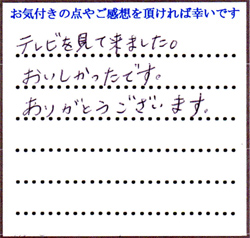 お気付きの点やご感想を頂ければ幸いです
テレビを見て来ました。
おいしかったです。
ありがとうございます。